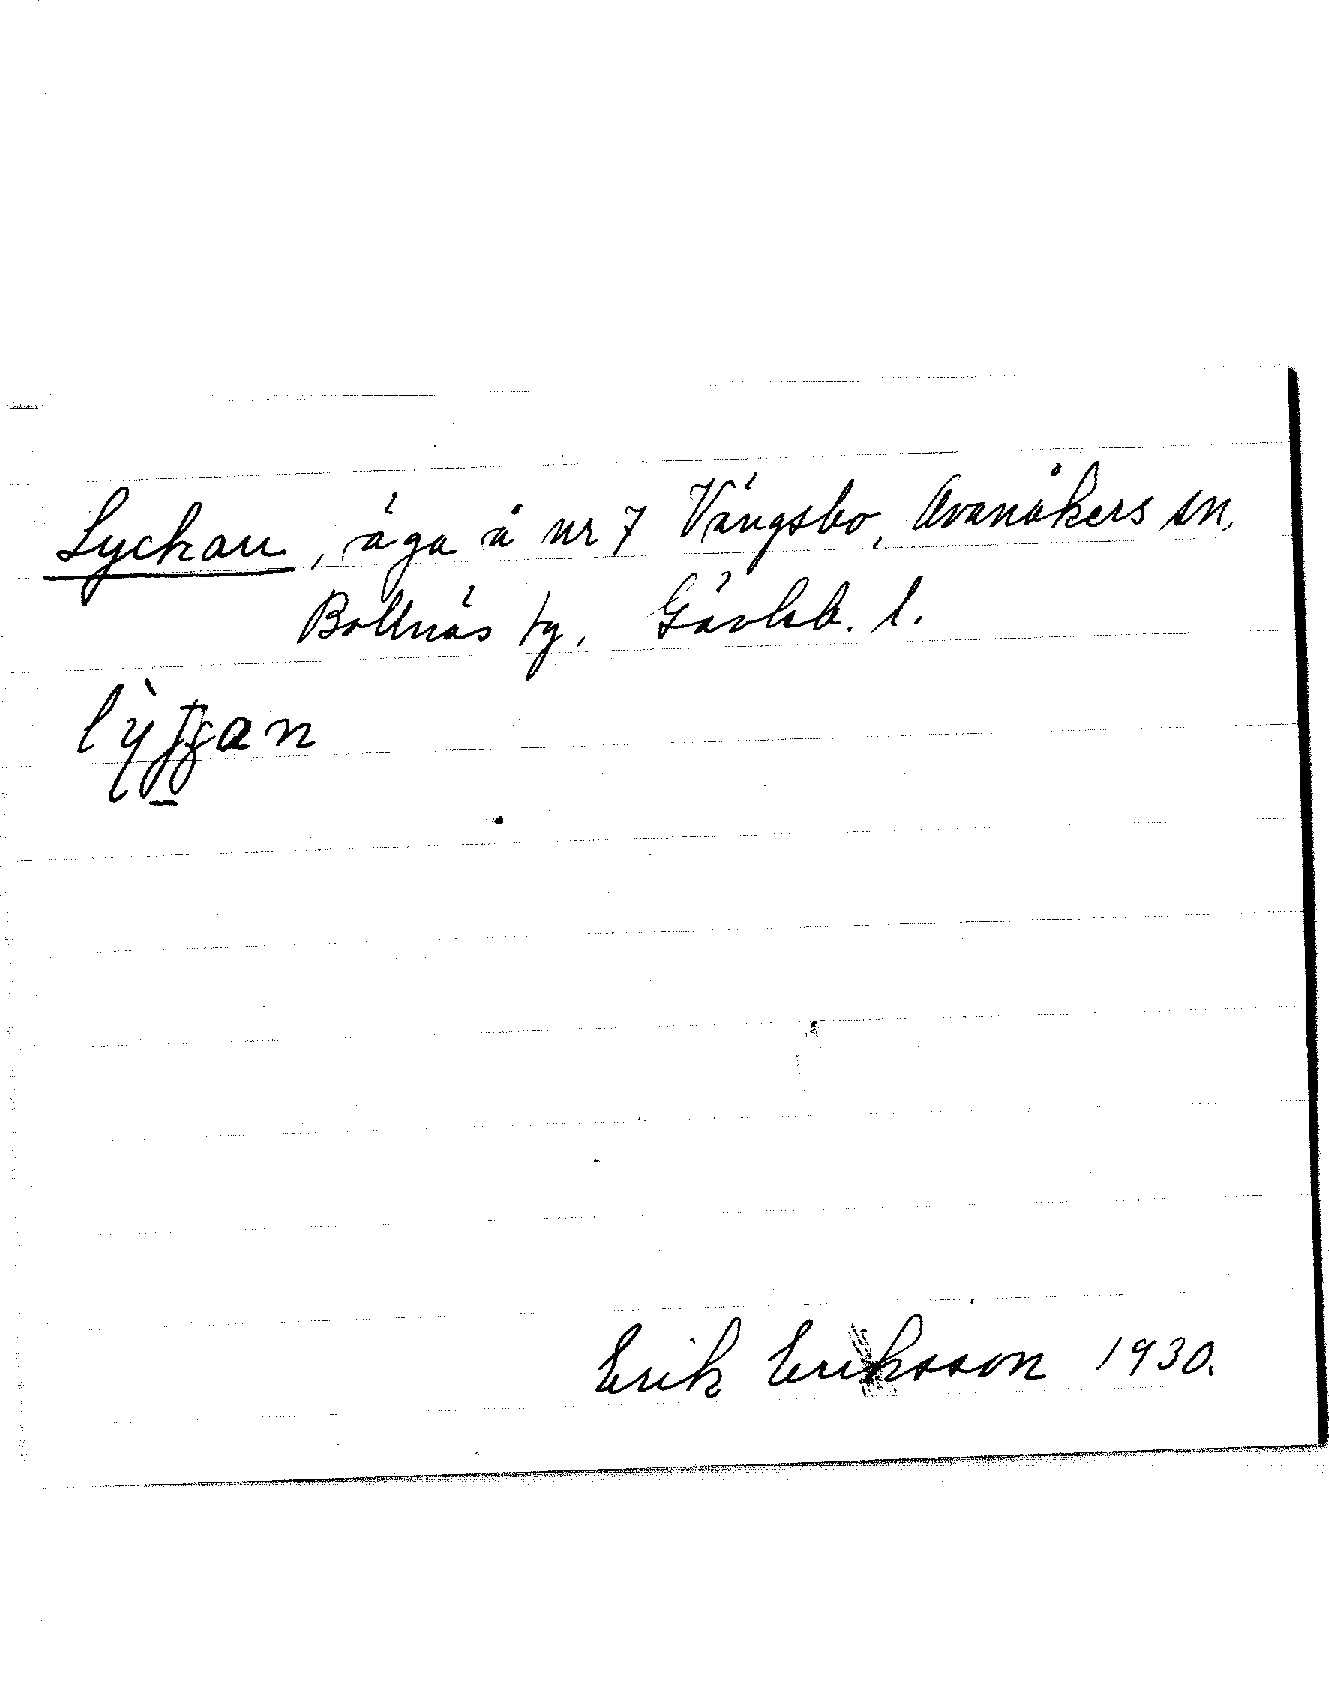 Lyckan, äga å nr 7 Vängsbo, Alvanåkers sn,
Bollnäs tg, Gävleb. l.
Erik Eriksson 1930.